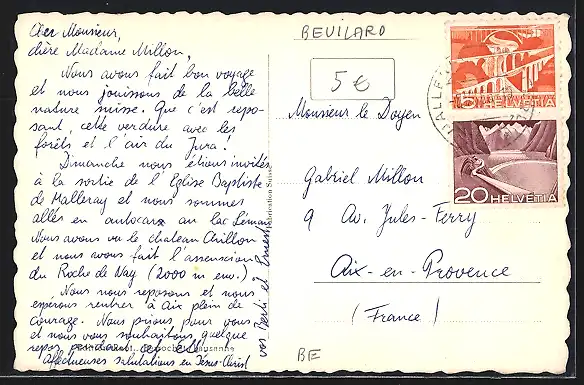 Cher Monsieur,
chère Madame Millon,
Nous avons fait bon voyage
et nous jouissons de la belle
nature suisse. Que c'est repo-
sant, cette verdure avec les
forêts et l'air du Jura!
Dimanche nous étions invités
à la sortie de l'Eglise Baptiste
de Malleray et nous sommes
allés en autocar au lac Léman
Nous avons vu le chateau Chillon
et nous avons fait l'ascension
du Roche de Nay (2000 m env.)
Nous nous reposons et nous
espérons rentrer à Aix plein de
courage. Nous prions pour vous
et nous vous souhaitons quelque
repos pendant cet été.
Affectueuses salutations en Jésus-Christ
vos Berti et Ernest
BEVILARD
5€
Monsieur le Doyen
Gabriel Millon
9 Av. Jules-Ferry
Aix-en-Provence
(France)
BE
5 HELVETIA
20 HELVETIA
MALLE